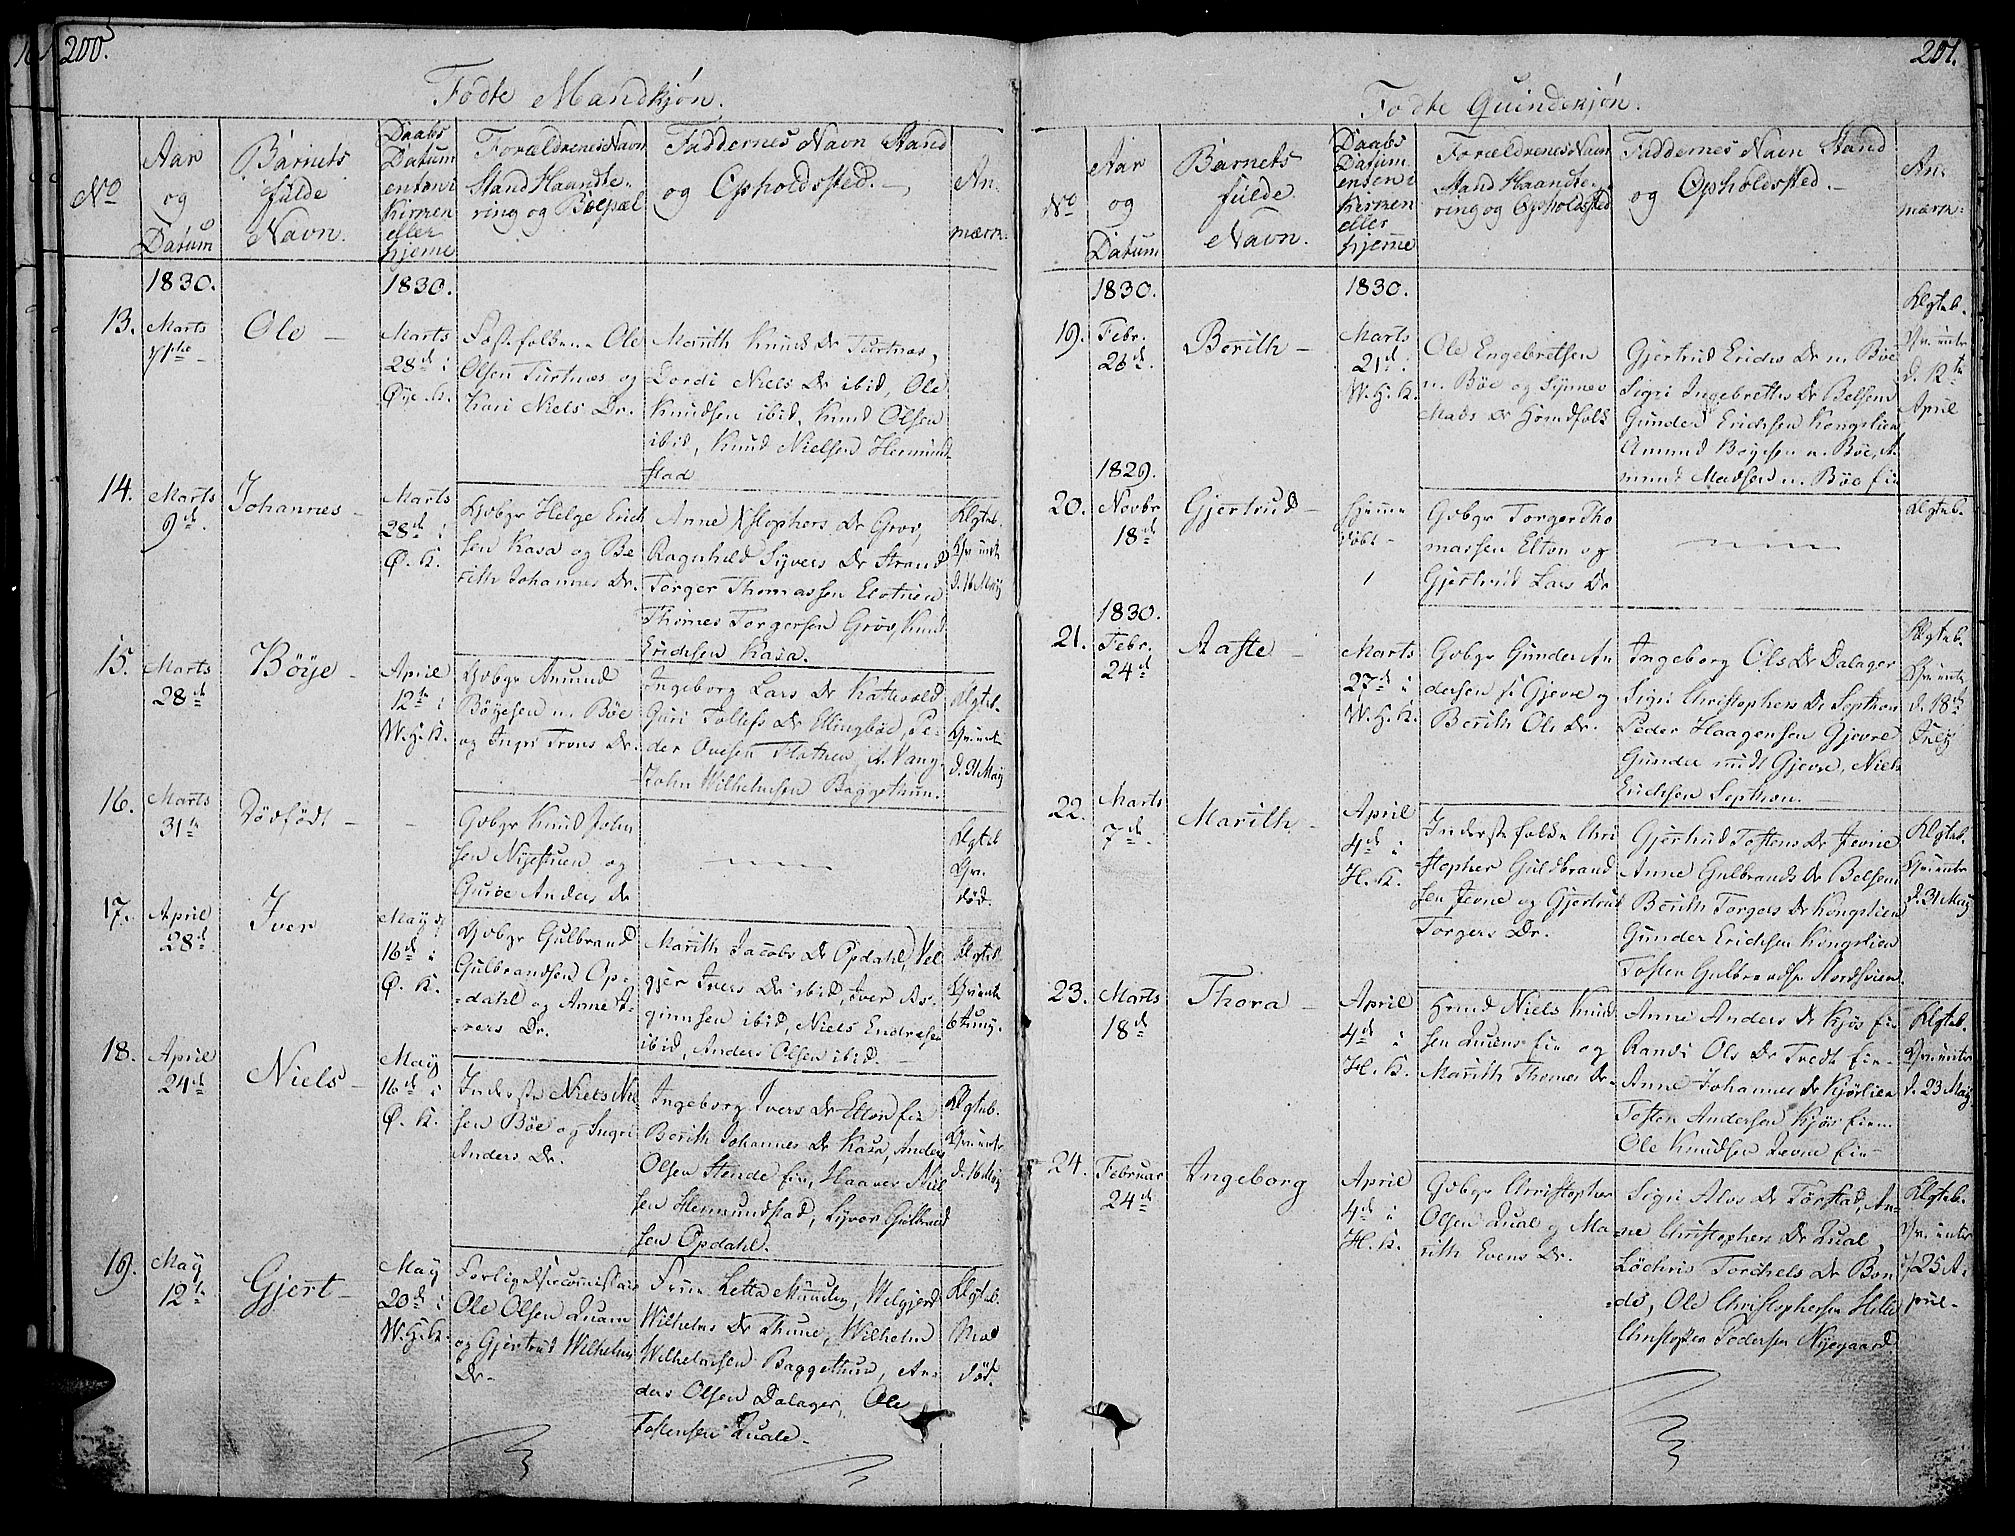 200.
Fødte Mandkjøn.
No
Aar
og
Datum
Barnets
fulde
Navn.
Daabs
Datum
enten i
Kirken
eller
hjeme
Forældrenes Navn
Stand Haandte-
ring og Bopæl
Faddernes Navn Stand
og Opholdssted.
An-
mærk:
1830.
1830.
13.
Marts
Ole
Marts
28d i
Øye K.
Ole
Olsen Turtnes og
Kari Niels Dr.
Marith Knuds Dr Turtnes,
Lordi Niels Dr ibid, Ole
Knudsen ibid, Knud Olsen
ibid, Knud Nielsen Hermund-
stad
14.
Marts
9d.
Johannes
Marts
28d i
Ø. K.
Gbbgr Helge Erich
sen Kasa og Be
rith Johannes Dr.
Anne Xstophers Dr Grov,
Ragnhild Syvers Dr Strand
Torger Thomassen Elotuen
Thomes Torgersen Grov, Knud
Erichsen Kasa.
Klgtab.
d. 16 May
15.
Marts
28d
Bøye
April
12te i
W. H. K.
Gbbgr Amund
Bøyesen n. Bøe
og Ingri Trons Dr.
Ingeborg Lars Dr Kattevold
Guri Tollefs Dr Ellingbøe, Pe-
der Ovesen Flathen, A. Vang,
John Wilhelmsen Baggethun.
Klgtab.
d. 31 May
16.
Marts
31te
Dødfødt
Gbbgr Knud John
sen Nyestuen og
Guroe Anders Dr
Klgtab
Gr.
død.
17.
April
28d
Iver
May d
16d i
Ø. K.
Gbbgr Gulbrand
Gulbrandsen Op-
dahl og Anne I-
vers Dr.
Marith Jacobs Dr Opdahl, Vel
gjer Ivers Dr ibid, Iver As-
gunsen ibid, Niels Endresen
ibid, Anders Olsen ibid.
Klgtab
18.
April
24d
Niels
May
16d i
Ø. K.
Inderste Niels Niel-
sen Bøe og Ingri
Anders Dr.
Ingeborg Ivers Dr Elton fin
Berith Johannes Dr Kasa, Anders
Olsen Stende fin, Haaver Niel
sen Hermundstad, Syver Gulbrand
sen Opdahl.
Klgtab.
d. 16 May
19.
May
12te
Gjert
May
20d i
W. H. K.
Forligelsescomissair
Ole Olsen Quam
og Gjertrud Wilhelms
Dr.
Frue Letta Munster, Welgjerd
Wilhelms Dr Thune, Wilhelm
Wilhelmsen Baggethun, An-
ders Olsen Dalager, Ole
Tostensen Quale
Klgtab.
Mod
død.
201.
Fødte Quindekjøn.
No
Aar
og
Datum
Barnets
fulde
Navn.
Daabs
Datum
enten i
Kirken
eller
hjeme
Forældrenes Navn
Stand Haandte-
ring og Opholdssted
Faddernes Navn Stand
og Opholdssted.
An-
mærk:
1830.
1830.
19.
Febr.
26d.
Berith
Marts
21d i
W. H. K.
Ole Engebretsen
n. Bøe og Synnev
Mads Dr Huusfolk
Gjertrud Erichs Dr n. Bøe
Sigri Ingebreths Dr Belsem
Gunder Erichsen Kongslien
Amund Bøyesen n. Bøe, A-
mund Madsen n. Bøe fin
Klgtab.
d. 12te
April
1829.
20.
Novbr
18d
Gjertrud
hjemme
døbt
Gbbgr Torger Tho
massen Elton og
Gjertrud Lars Dr
Klgtab.
1830.
21.
Febr.
24d
Aaste
Marts
27d i
W. H. K.
Gbbgr Gunder An
dersen Gjevre og
Berith Ols Dr.
Ingeborg Ols Dr Dalager
Sigri Christophers Dr Sephon
Peder Haagensen Gjevre
Gunder midt Gjevre, Niels
Erichsen Septhon.
Klgtab.
d. 18d
July
22.
Marts
7d
Marith
April
4d i
H. K.
Inderste folk Chri
stopher Guldbrand
sen Jevne og Gjertrud
Torgers Dr.
Gjertrud Tostens Dr Jevne
Anne Gulbrands Dr Belsem
Berith Torgers Dr Kongslien
Gunder Erichsen Kongslien
Tosten Gulbrandsn Nordsveen
Klgtab.
d. 31 May
23.
Marts
18d
Thora
April
4d i
H. K.
Huusmd Niels Knud
sen Quens fin og
Marith Thomes Dr
Anne Anders Dr Kjøs fin
Randi Ols Dr Tvedt fin
Anne Johannes Dr Kjørlien
Tosten Andersen Kjøs fin
Ole Knudsen Jevne fin
Klgtab.
d. 23 May
24.
Februar
24d
Ingeborg
April
4d i
H. K.
Gbbgr Christopher
Olsen Qual og Ma-
rith Evens Dr.
Sigri Alvs Dr Torstad, An-
ne Christophers Dr Qual,
Torchels Dr Bon
de, Ole Christophersen Hille
Christopher Pedersen Nyegaard
Klgtab.
25 A-
pril